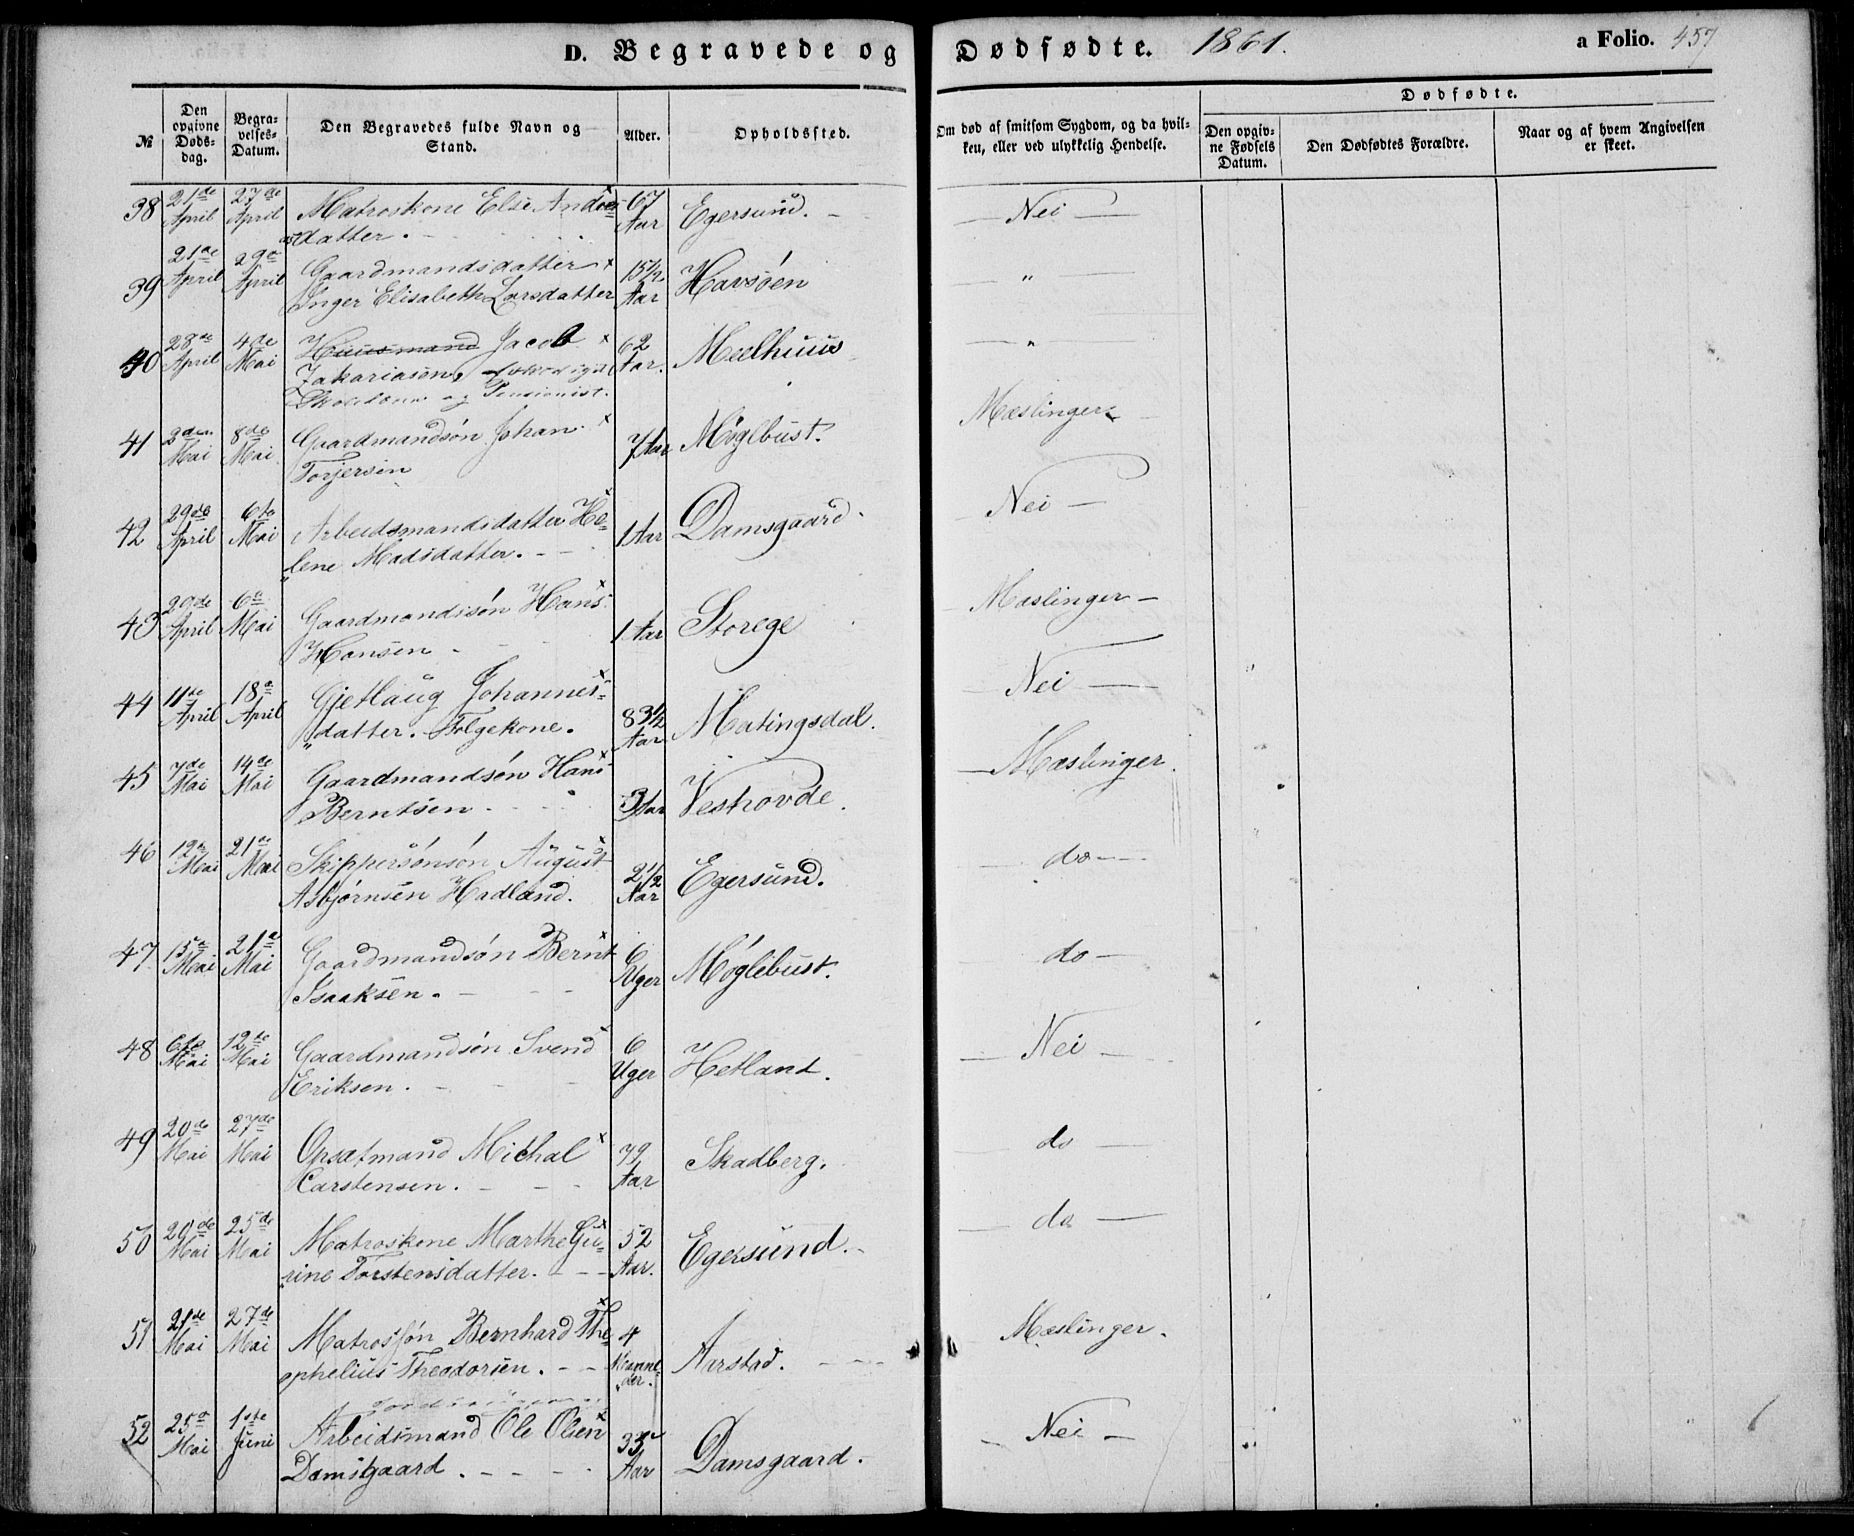 D. Begravede og Dødfødte. 1861. a Folio. 457
No
Den opgivne Døds-dag.
Begra-velses-Datum.
Den Begravedes fulde Navn og Stand.
Alder.
Opholdssted.
Om død af smitsom Sygdom, og da hvil-ken, eller ved ulykkelig Hendelse.
Dødfødte.
Den opgiv-ne Fødsels Datum.
Den Dødfødtes Forældre.
Naar og af hvem Angivelsen er skeet.
38 21de April 27de April Matroskone Else Andreas-datter. 67 Aar Egersund. Nei
39 21de April 29de April Gaardmandsdatter Inger Elisabeth Larsdatter 15 1/2 Aar Havsøen "
40 28de April 4de Mai Huusmand Jacob Zakariasen, og Pensionist. 62 Aar. Meelhuus "
41 2den Mai 8de Mai Gaardmandsøn Johan Torjersen 7 Aar Møglebust. Mæslinger
42 29de April 6te Mai Arbeidsmandsdatter He-lene Madsdatter. 1 Aar Damsgaard. Nei
43 29de April 6te Mai Gaardmandssøn Hans Hansen 1 Aar Storege Mæslinger
44 11te April 18de April Gjetlaug Johannes-datter. Følgekone. 83 1/2 Aar Matingsdal. Nei
45 7de Mai 14de Mai Gaardmandsøn Hans Berntsen. 3 Aar Vestrovde. Mæslinger.
46 12te Mai 21de Mai Skippersønsøn August Asbjørnsen Hadland. 2 1/2 Aar Egersund. do
47 15de Mai 21de Mai Gaardmandsøn Bernt Isaaksen. 6 Uger Møglebust. do
48 6te Mai 12te Mai Gaardmandsøn Svend Eriksen. 6 Uger Hetland. Nei
49 20de Mai 27de Mai Opsatmand Michal Karstensen. 79 Aar Skadberg. do
50 20de Mai 25de Mai Matroskone Marthe Gu-rine Torstensdatter. 52 Aar. Egersund. do
51 21de Mai 27de Mai Matrossøn Bernhard The-ophelius Theodorsen. 4 Maane-der. Aarstad. Mæslinger.
52 25de Mai 1ste Juni Arbeidsmand Ole Olsen Damsgaard. 33 Aar Damsgaard. Nei